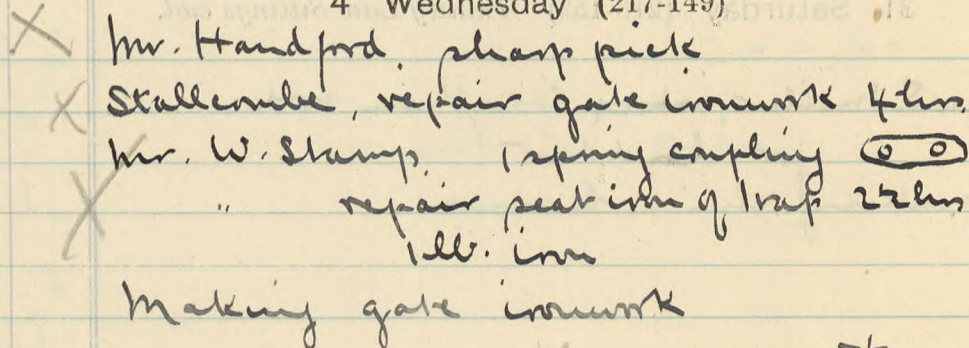 4 Wednesday (217-149)
Mr. Handford, sharp pick
Stallcombe, repair gate ironwork 4 hrs.
Mr. W. Stamp, 1 spring coupling
" repair seat iron of trap 2½ hrs
1 lb. iron
Making gate ironwork